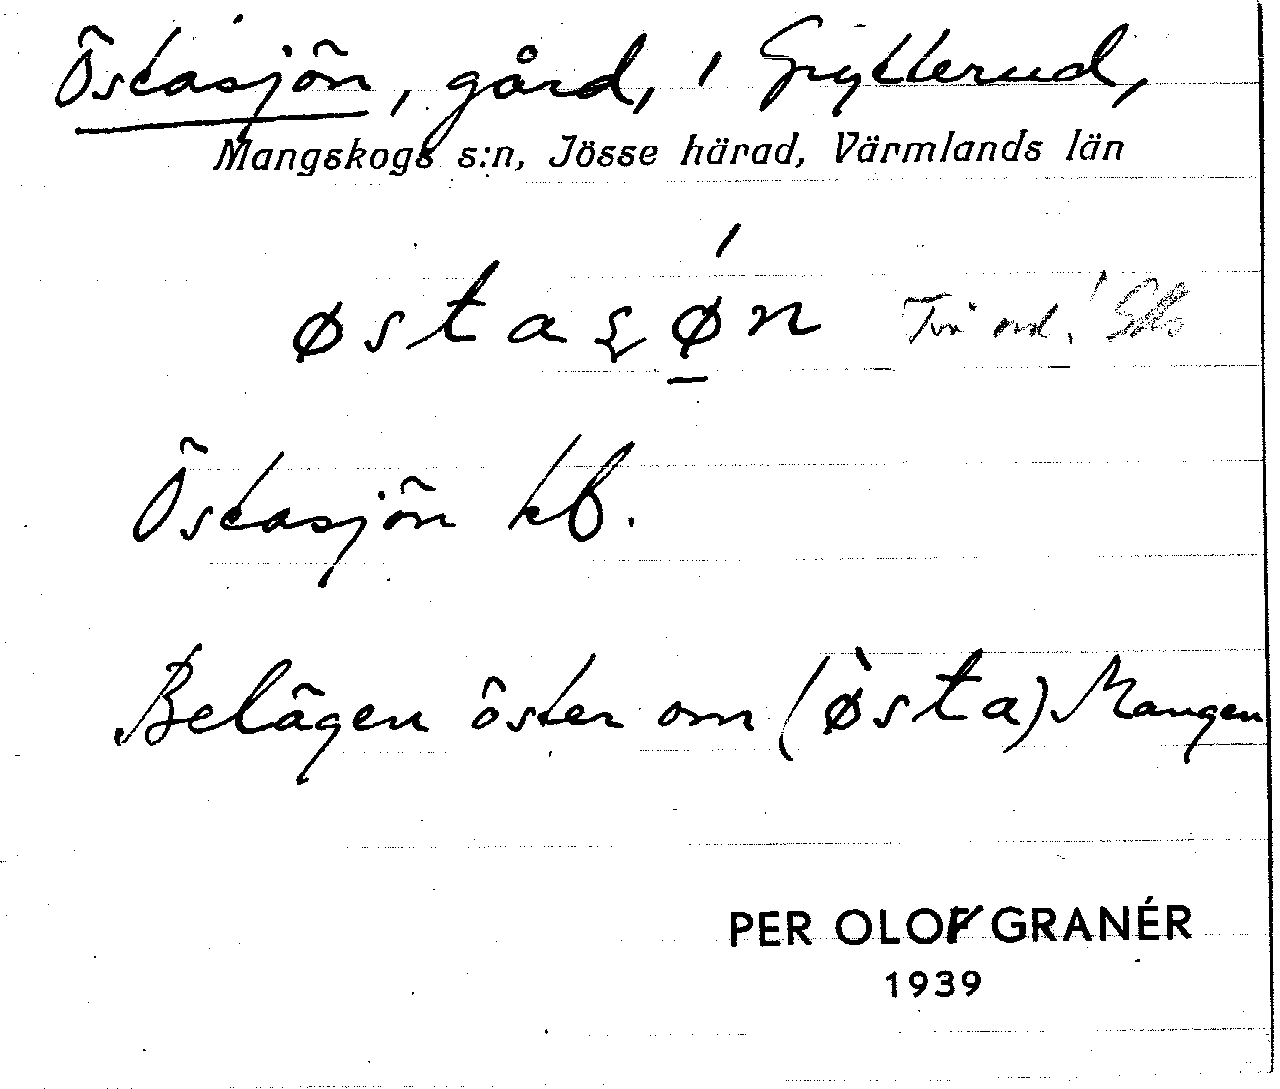 Östasjön, gård, i Grytterud,
Mangskogs s:n, Jösse härad, Värmlands län
østaꞩǿn Två ord!
Östasjön kb.
Belägen öster om (østa) Mangen
PER OLOF GRANÉR
1939